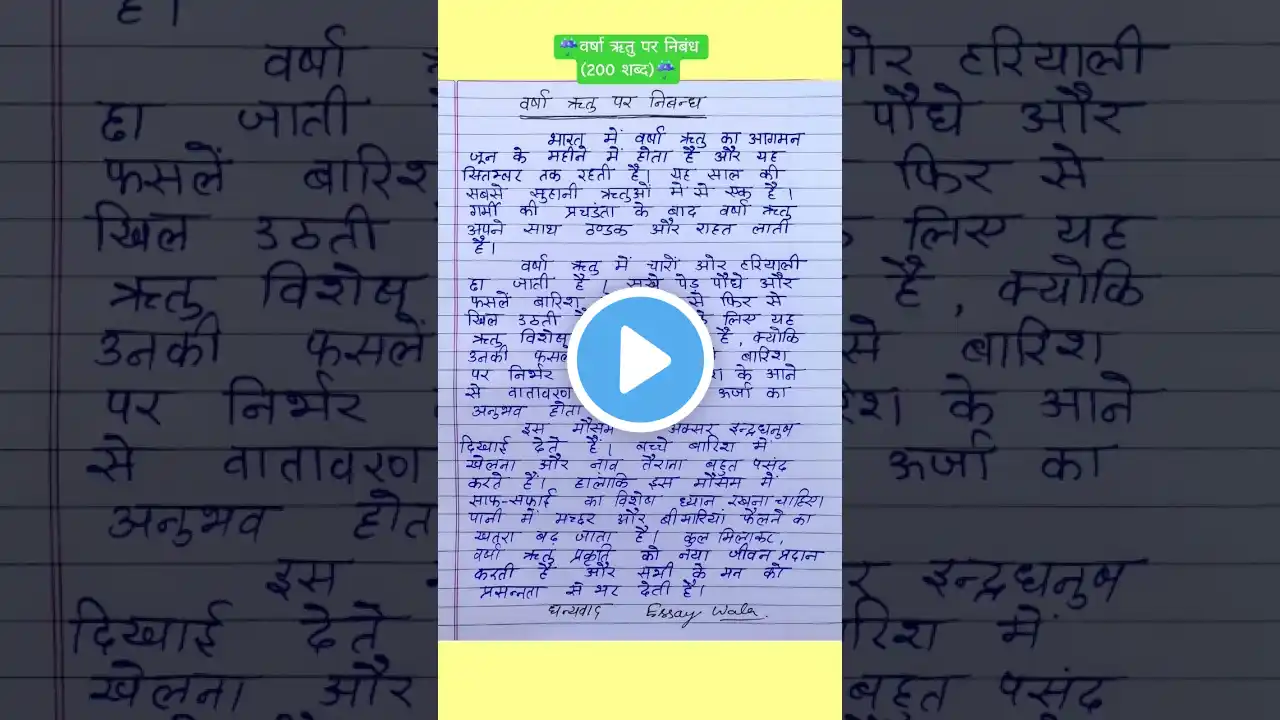 ☔वर्षा ऋतु पर निबंध
(200 शब्द)☔
वर्षा ऋतु पर निबन्ध
भारत में वर्षा ऋतु का आगमन
जून के महीने में होता है और यह
सितम्बर तक रहती है। यह साल की
सबसे सुहानी ऋतुओं में से एक है।
गर्मी की प्रचंडता के बाद वर्षा ऋतु
अपने साथ ठण्डक और राहत लाती
है।
वर्षा ऋतु में चारों ओर हरियाली
छा जाती है। सूखे पेड़ पौधे और
फसलें बारिश से फिर से
खिल उठती लिए यह
ऋतु विशेष है, क्योंकि
उनकी फसलें बारिश
पर निर्भर के आने
से वातावरण ऊर्जा का
अनुभव होता
इस मौसम अक्सर इन्द्रधनुष
दिखाई देते हैं। बच्चे बारिश में
खेलना और नाव तैराना बहुत पसंद
करते हैं। हालांकि इस मौसम में
साफ-सफाई का विशेष ध्यान रखना चाहिए।
पानी में मच्छर और बीमारियां फैलने का
खतरा बढ़ जाता है। कुल मिलाकर,
वर्षा ऋतु प्रकृति को नया जीवन प्रदान
करती है और सभी के मन को
प्रसन्नता से भर देती है।
धन्यवाद Essay Wala.